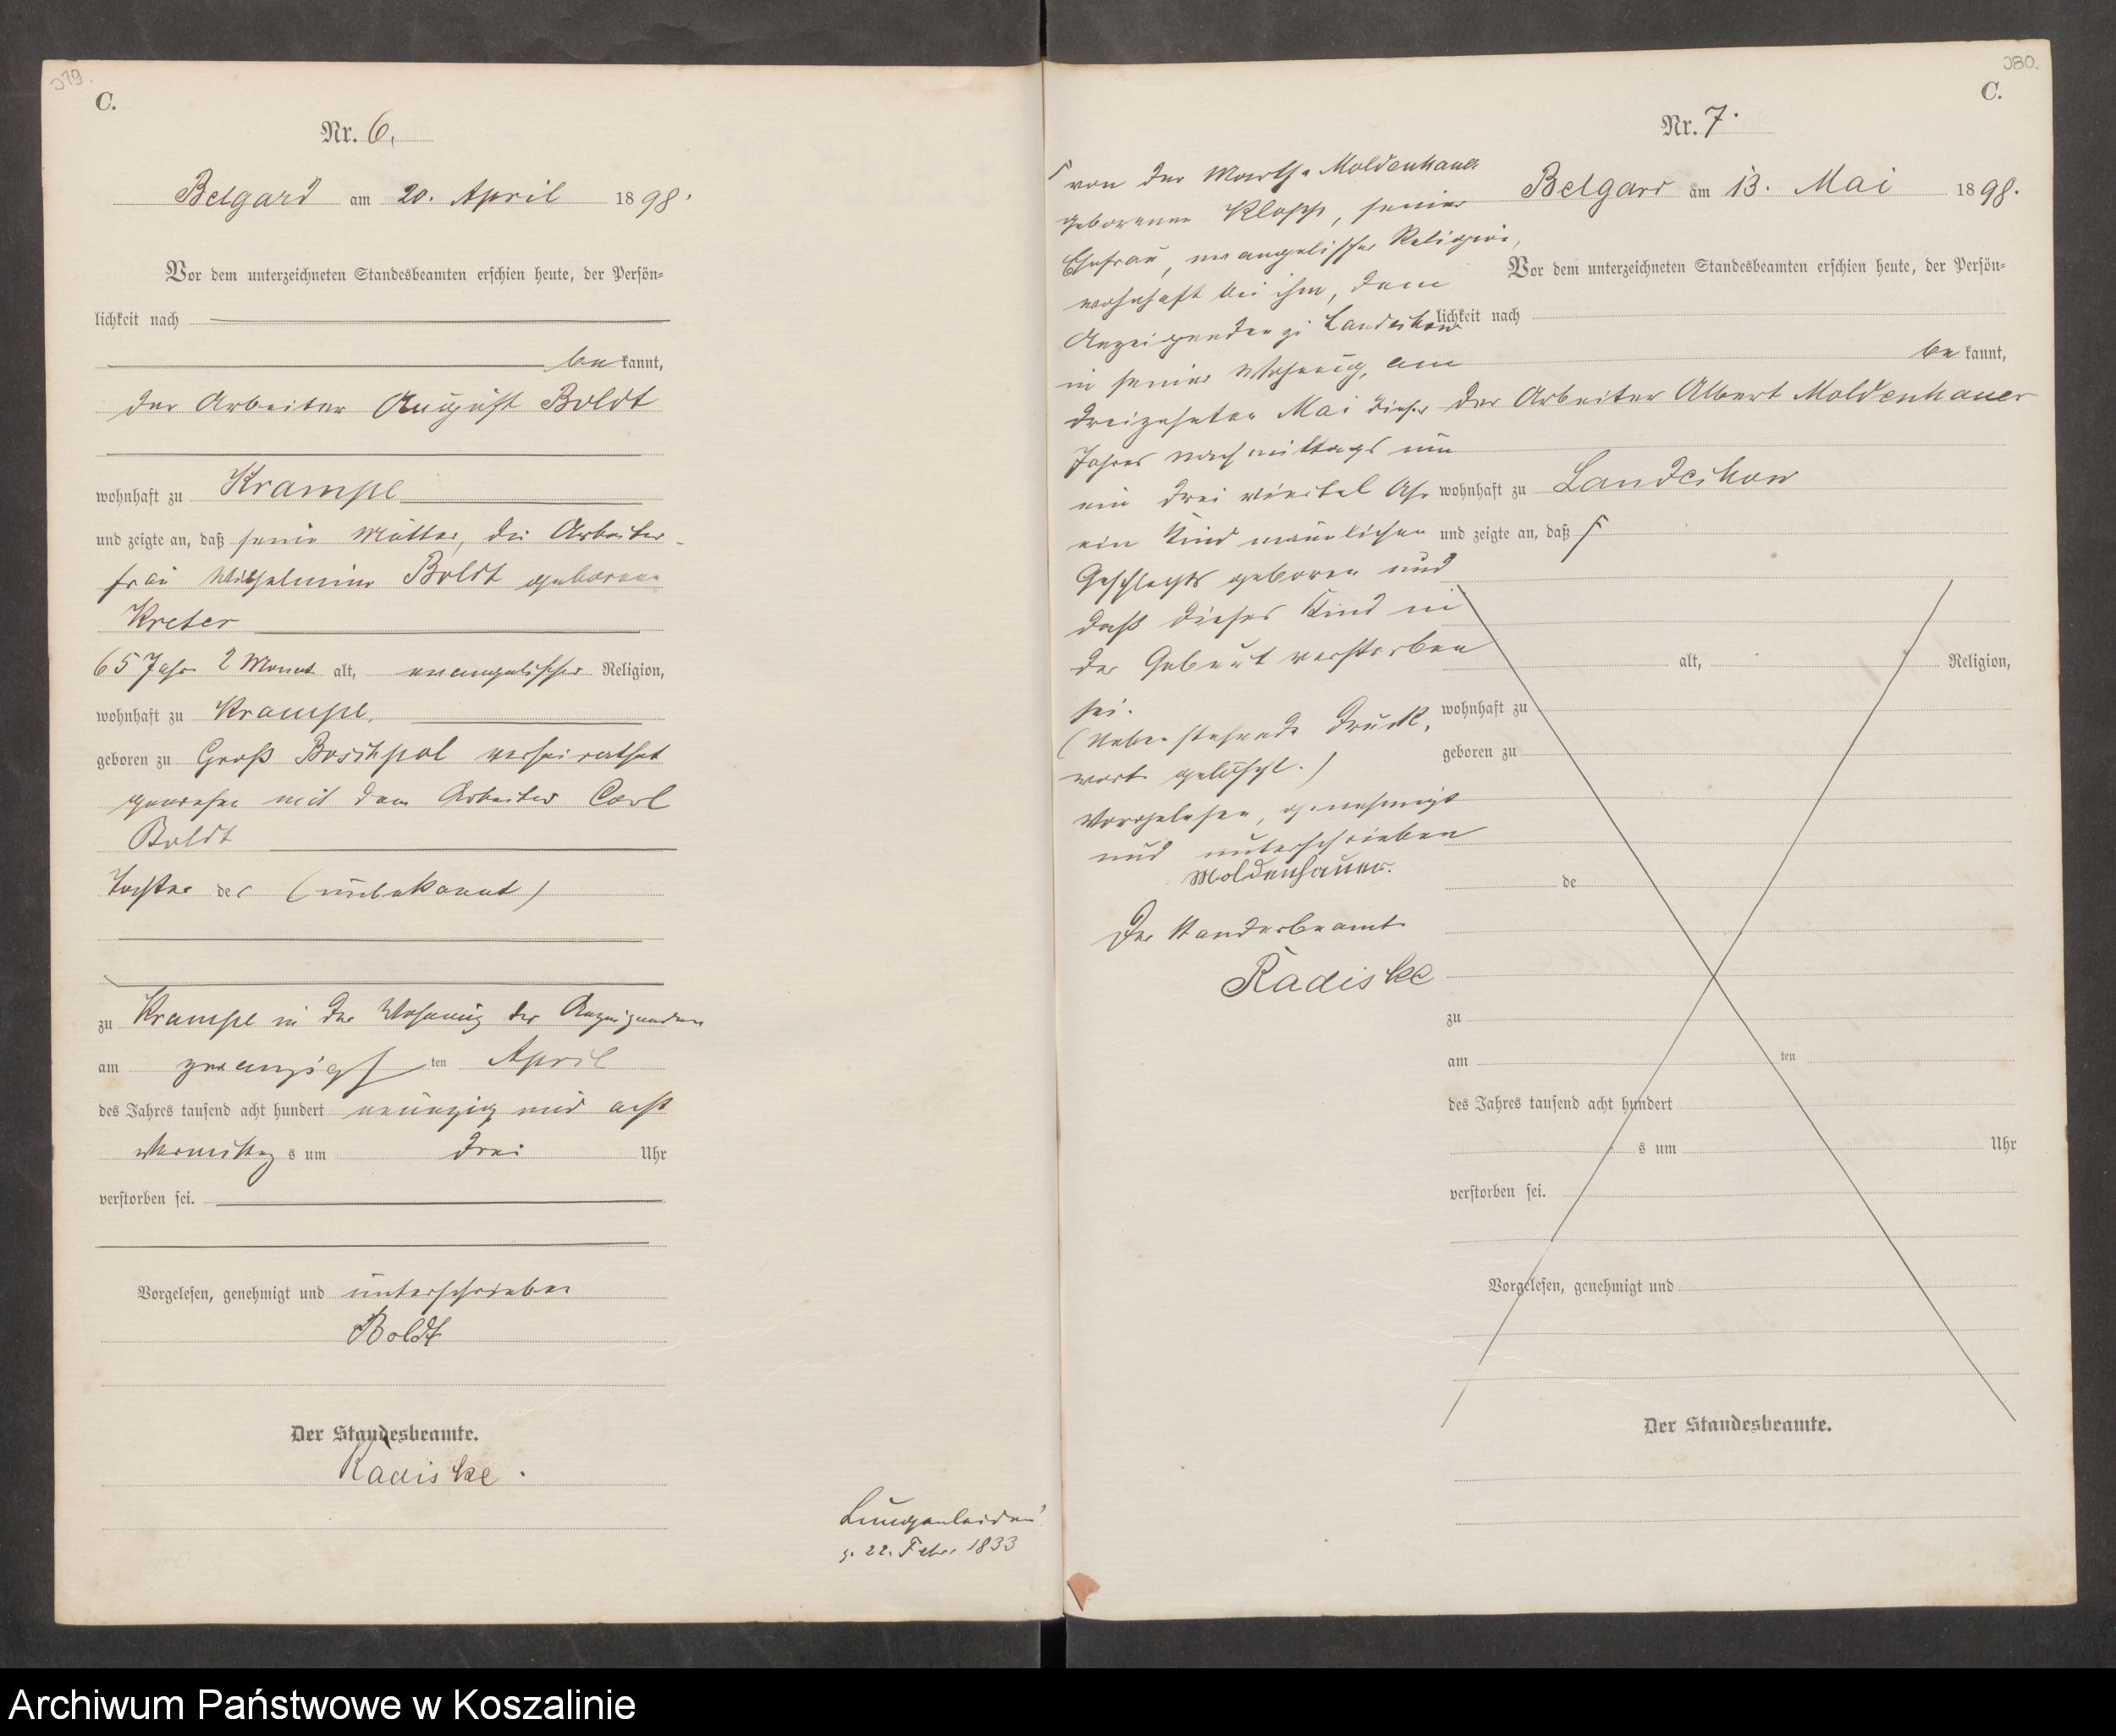 379.
C.
Nr. 6.
Belgard am 20. April 1898.
Vor dem unterzeichneten Standesbeamten erschien heute, der Persön-
lichkeit nach
be kannt,
der Arbeiter August Boldt
wohnhaft zu Krampe
und zeigte an, daß seine Mutter, die Arbeiter-
frau Wilhelmine Boldt geborene
Kreter
65 Jahr 2 Monat alt, evangelischer Religion,
wohnhaft zu Krampe,
geboren zu Groß Boschpol verheirathet
gewesen mit dem Arbeiter Carl
Boldt
Tochter der (unbekannt)
zu Krampe in der Wohnung des Anzeigenden
am zwanzigsten April
des Jahres tausend acht hundert neunzig und acht
Vormittags um drei Uhr
verstorben sei.
Vorgelesen, genehmigt und unterschrieben
Boldt
Der Standesbeamte.
Radiske.
Lungenleiden
g. 22. Febr. 1833
380.
C.
Nr. 7.
Belgard am 13. Mai 1898.
Vor dem unterzeichneten Standesbeamten erschien heute, der Persön-
lichkeit nach
be kannt,
der Arbeiter Albert Moldenhauer
wohnhaft zu Landechow
und zeigte an, daß Γ
alt, Religion,
wohnhaft zu
geboren zu
de
zu
am ten
des Jahres tausend acht hundert
s um Uhr
verstorben sei.
Vorgelesen, genehmigt und
Der Standesbeamte.
Γ von der Martha Moldenhauer
geborenen Klopp, seiner
Ehefrau, evangelischer Religion,
wohnhaft bei ihm, dem
Anzeigenden zu Landechow
in seiner Wohnung, am
dreizehnten Mai dieses
Jahres nachmittags um
ein drei viertel Uhr
ein Kind männlichen
Geschlechts geboren und
daß dieses Kind in
der Geburt verstorben
sei.
(Nebenstehende Druck-
worte gelöscht.)
Vorgelesen, genehmigt
und unterschrieben
Moldenhauer.
Der Standesbeamte
Radiske
Archiwum Państwowe w Koszalinie